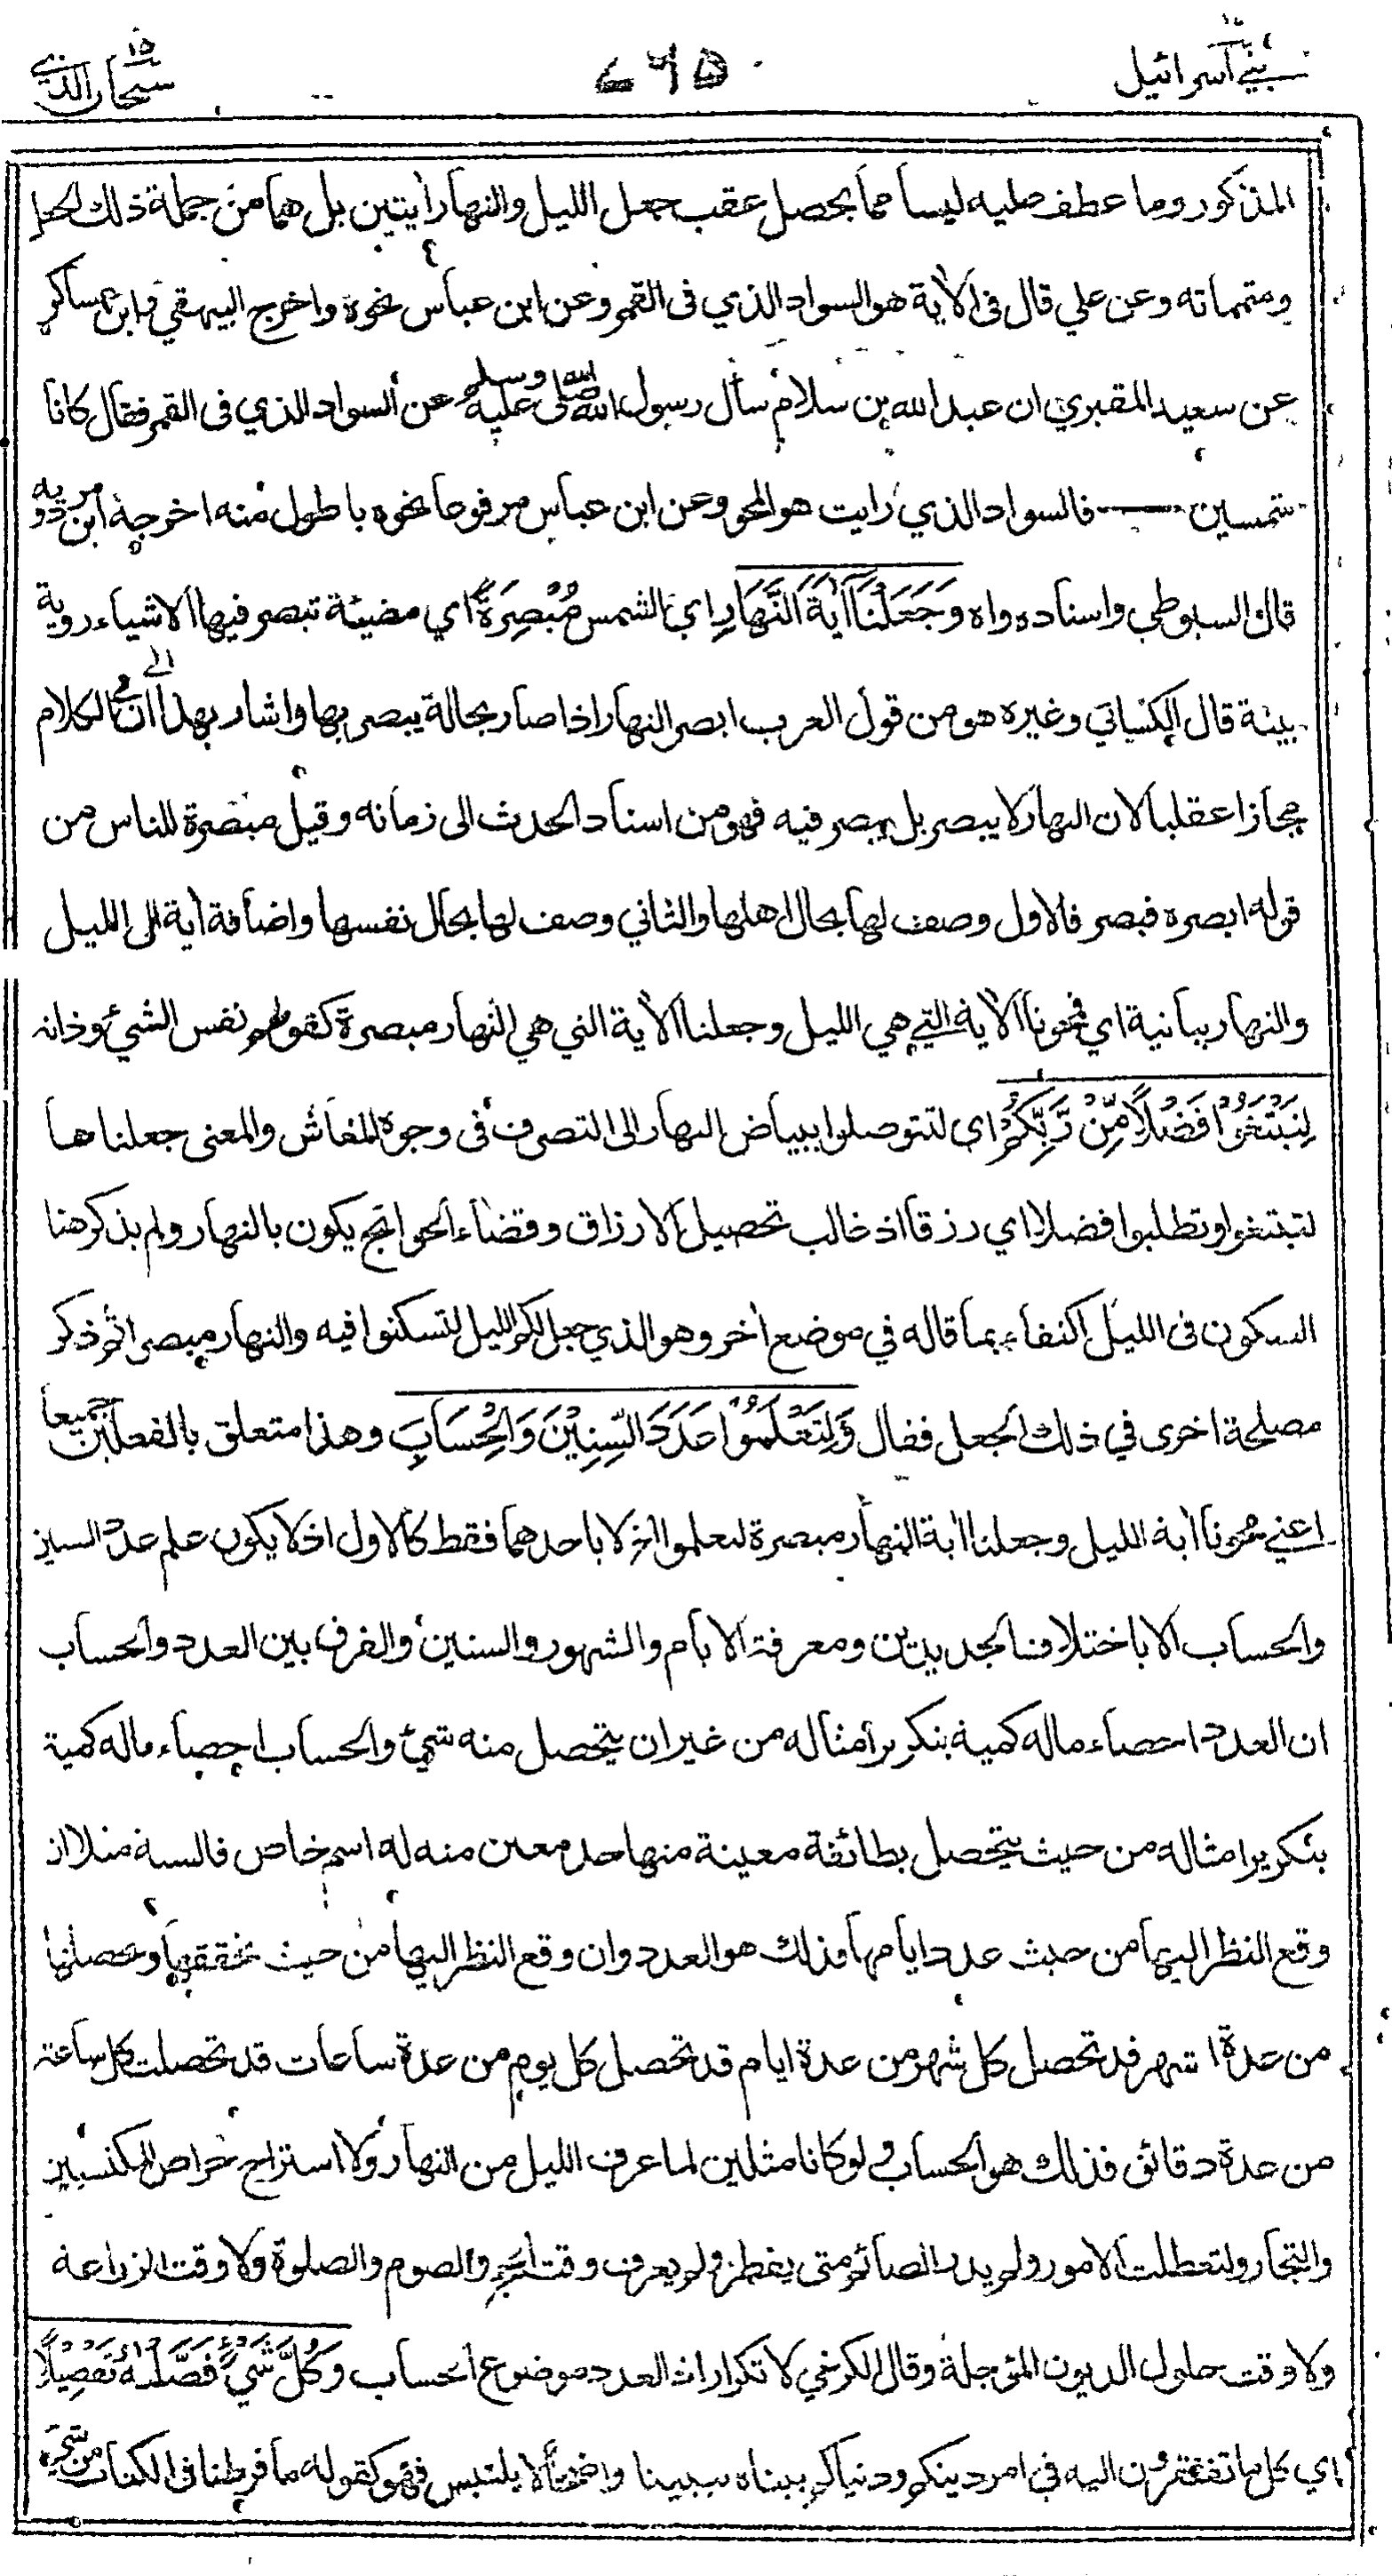 بني اسرائيل ١٧
٧٦٥
سبحان الذي ١٥
المذكور وما عطف عليه ليسا مما يحصل عقب جعل الليل والنهار ايتين بل هما من جملة ذلك الجعل
ومتمماته وعن علي قال فى الأية هو السواد الذي فى القمر وعن ابن عباس نحوه واخرج البيهقي وابن عساكر
عن سعيد المقبري ان عبد الله بن سلام سأل رسول الله صلى الله عليه وسلم عن السواد الذي فى القمر فقال كانا
شمسين فالسواد الذي رايت هو المحو وعن ابن عباس مرفوعا نحوه باطول منه اخرجه ابن مردويه
قال السيوطي واسناده واه وَجَعَلْنَآ اٰيَةَ النَّهَارِ اي الشمس مُبْصِرَةً اي مضيئة تبصر فيها الاشياء روية
بينة قال الكسائي وغيره هو من قول العرب ابصر النهار اذا صار بحالة يبصر بها واشار بهذا الى ان في الكلام
مجازا عقليا لان النهار لا يبصر بل يبصر فيه فهو من اسناد الحدث الى زمانه وقيل مبصرة للناس من
قوله ابصره فبصر فالاول وصف لها بحال اهلها والثاني وصف لها بحال نفسها واضافة اية الى الليل
والنهار بيانية اي فمحونا الأية التي هي الليل وجعلنا الأية التي هي النهار مبصرة كقولهم نفس الشيئ وذاته
لِتَبْتَغُوْا فَضْلًا مِّنْ رَّبِّكُمْ اي لتتوصلوا ببياض النهار الى التصرف فى وجوه المعاش والمعنى جعلناها
لتبتغوا وتطلبوا فضلا اي رزقا اذ غالب تحصيل الارزاق وقضاء الحوائج يكون بالنهار ولم يذكر هنا
السكون فى الليل اكتفاء بما قاله في موضع اخر وهو الذي جعل لكم الليل لتسكنوا فيه والنهار مبصرا ثم ذكر
مصلحة اخرى في ذلك الجعل فقال وَلِتَعْلَمُوْا عَدَدَ السِّنِيْنَ وَالْحِسَابَ وهذا متعلق بالفعلين جميعا
اعني محونا أية الليل وجعلنا أية النهار مبصرة لتعلموا الخ لا باحدهما فقط كالاول اذ لا يكون علم عدد السنين
والحساب الا باختلاف الجديدين ومعرفة الايام والشهور والسنين والفرق بين العدد والحساب
ان العدد احصاء ماله كمية بتكرير امثاله من غير ان يتحصل منه شيئ والحساب احصاء ماله كمية
بتكرير امثاله من حيث يتحصل بطائفة معينة منها حد معين منه له اسم خاص فالسنة مثلا ان
وقع النظر اليها من حيث عدد ايامها فذلك هو العدد وان وقع النظر اليها من حيث تحققها وتحصلها
من عدة اشهر قد تحصل كل شهر من عدة ايام قد تحصل كل يوم من عدة ساعات قد تحصلت كل ساعة
من عدة دقائق فذلك هو الحساب ولو كانا مثلين لما عرف الليل من النهار ولا استراح حراص المكتسبين
والتجار ولتعطلت الامور ولم يدر الصائم متى يفطر ولم يعرف وقت الحج والصوم والصلوة ولا وقت الزراعة
ولا وقت حلول الديون المؤجلة وقال الكرخي لا تكرار اذ العدد موضوع الحساب وَكُلَّ شَيْءٍ فَصَّلْنٰهُ تَفْصِيْلًا
اي كل ما تفتقرون اليه في امر دينكم ودنياكم بيناه تبيينا واضحا لا يلتبس فهو كقوله ما فرطنا فى الكتاب من شيئ